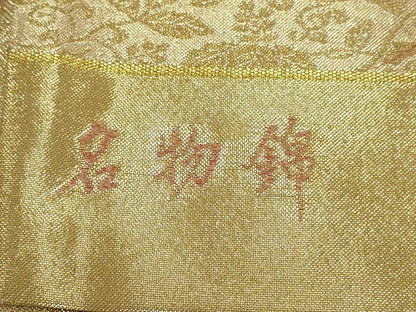 名物錦